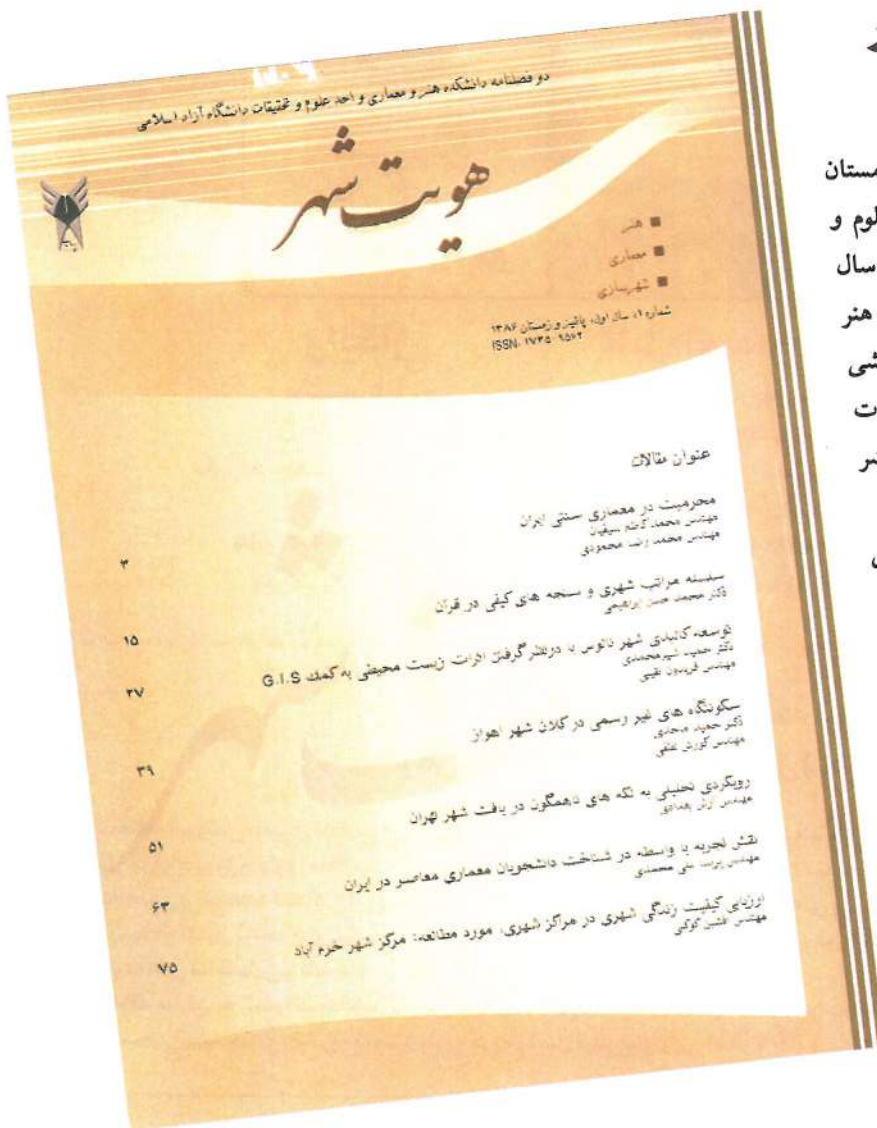 دو فصلنامه دانشکده هنر و معماری واحد علوم و تحقیقات دانشگاه آزاد اسلامی
هویت شهر
هنر
معماری
شهرسازی
شماره ۱، سال اول، پائیز و زمستان ۱۳۸۶
ISSN. ۱۷۳۵-۹۵۶۲
عنوان مقالات
محرمیت در معماری سنتی ایران
مهندس محمد کاظم سیفیان
مهندس محمد رضا محمودی
۳
سلسله مراتب شهری و سنجه های کیفی در قرآن
دکتر محمد حسن ابراهیمی
۱۵
توسعه کالبدی شهر نائوس با درنظر گرفتن اثرات زیست محیطی به کمک G.I.S
دکتر حمید شیرمحمدی
مهندس فریدون نقیبی
۲۷
سکونتگاه های غیر رسمی در کلان شهر اهواز
دکتر حمید ماجدی
مهندس کورش
۳۹
رویکردی تحلیلی به لکه های ناهمگون در بافت شهر تهران
مهندس آرش بغدادی
۵۱
نقش تجربه با واسطه در شناخت دانشجویان معماری معاصر در ایران
مهندس پریسا علی محمدی
۶۳
ارزیابی کیفیت زندگی شهری در مراکز شهری، مورد مطالعه: مرکز شهر خرم آباد
مهندس افشین کوکبی
۷۵
مستان
لوم و
سال
هنر
شی
ات
ضر